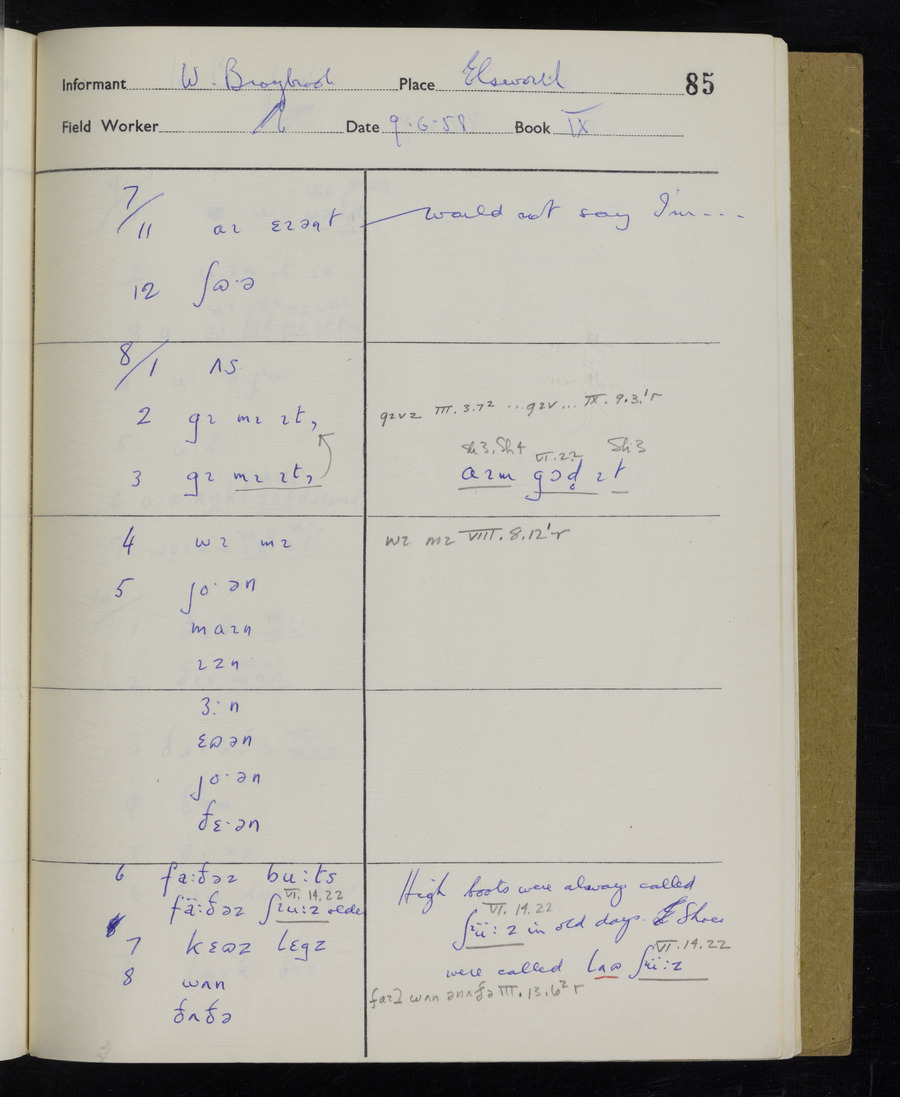 Informant W. Braybrook Place Elsworth 85
Field Worker Date 9.6.58 Book IX
7/11 aɪ ɛɪənt would not say I'm---
12 ʃɷ·ə
8/1 ʌs
2 gɪ mɪ ɪt, gɪvz III.3.7² ...gɪv... IX.9.3.'r
Sh3, Sh4 VI.22 Sh3
3 gɪ mɪ ɪt, aɪm gɔd̥ ɪt
4 wɪ mɪ wɪ mɪ VIII.8.12'r
5 jo·ən
maɪn
ɪzn
ɜ:n
ɛɷən
jo·ən
ðɛ·ən
6 fa:ðəz bu:ts High boots were always called
VI.14.22
fa:ðəz ʃɪu:z older
VI.14.22
ʃɪü:z in old days. Shoes
7 kɛɷz lɛgz
VI.14.22
were called lʌɷ ʃɪü:z
8 wʌn
faɪ wʌn ənʌðə III.13.6² r
ðʌðə